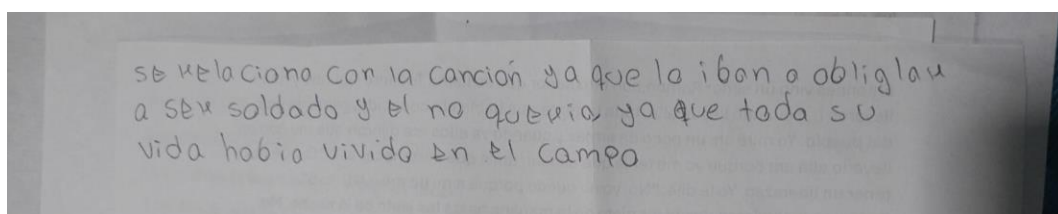 se relaciona con la canción ya que lo iban a obliglar
a ser soldado y el no queria ya que toda su
vida habia vivido en el campo